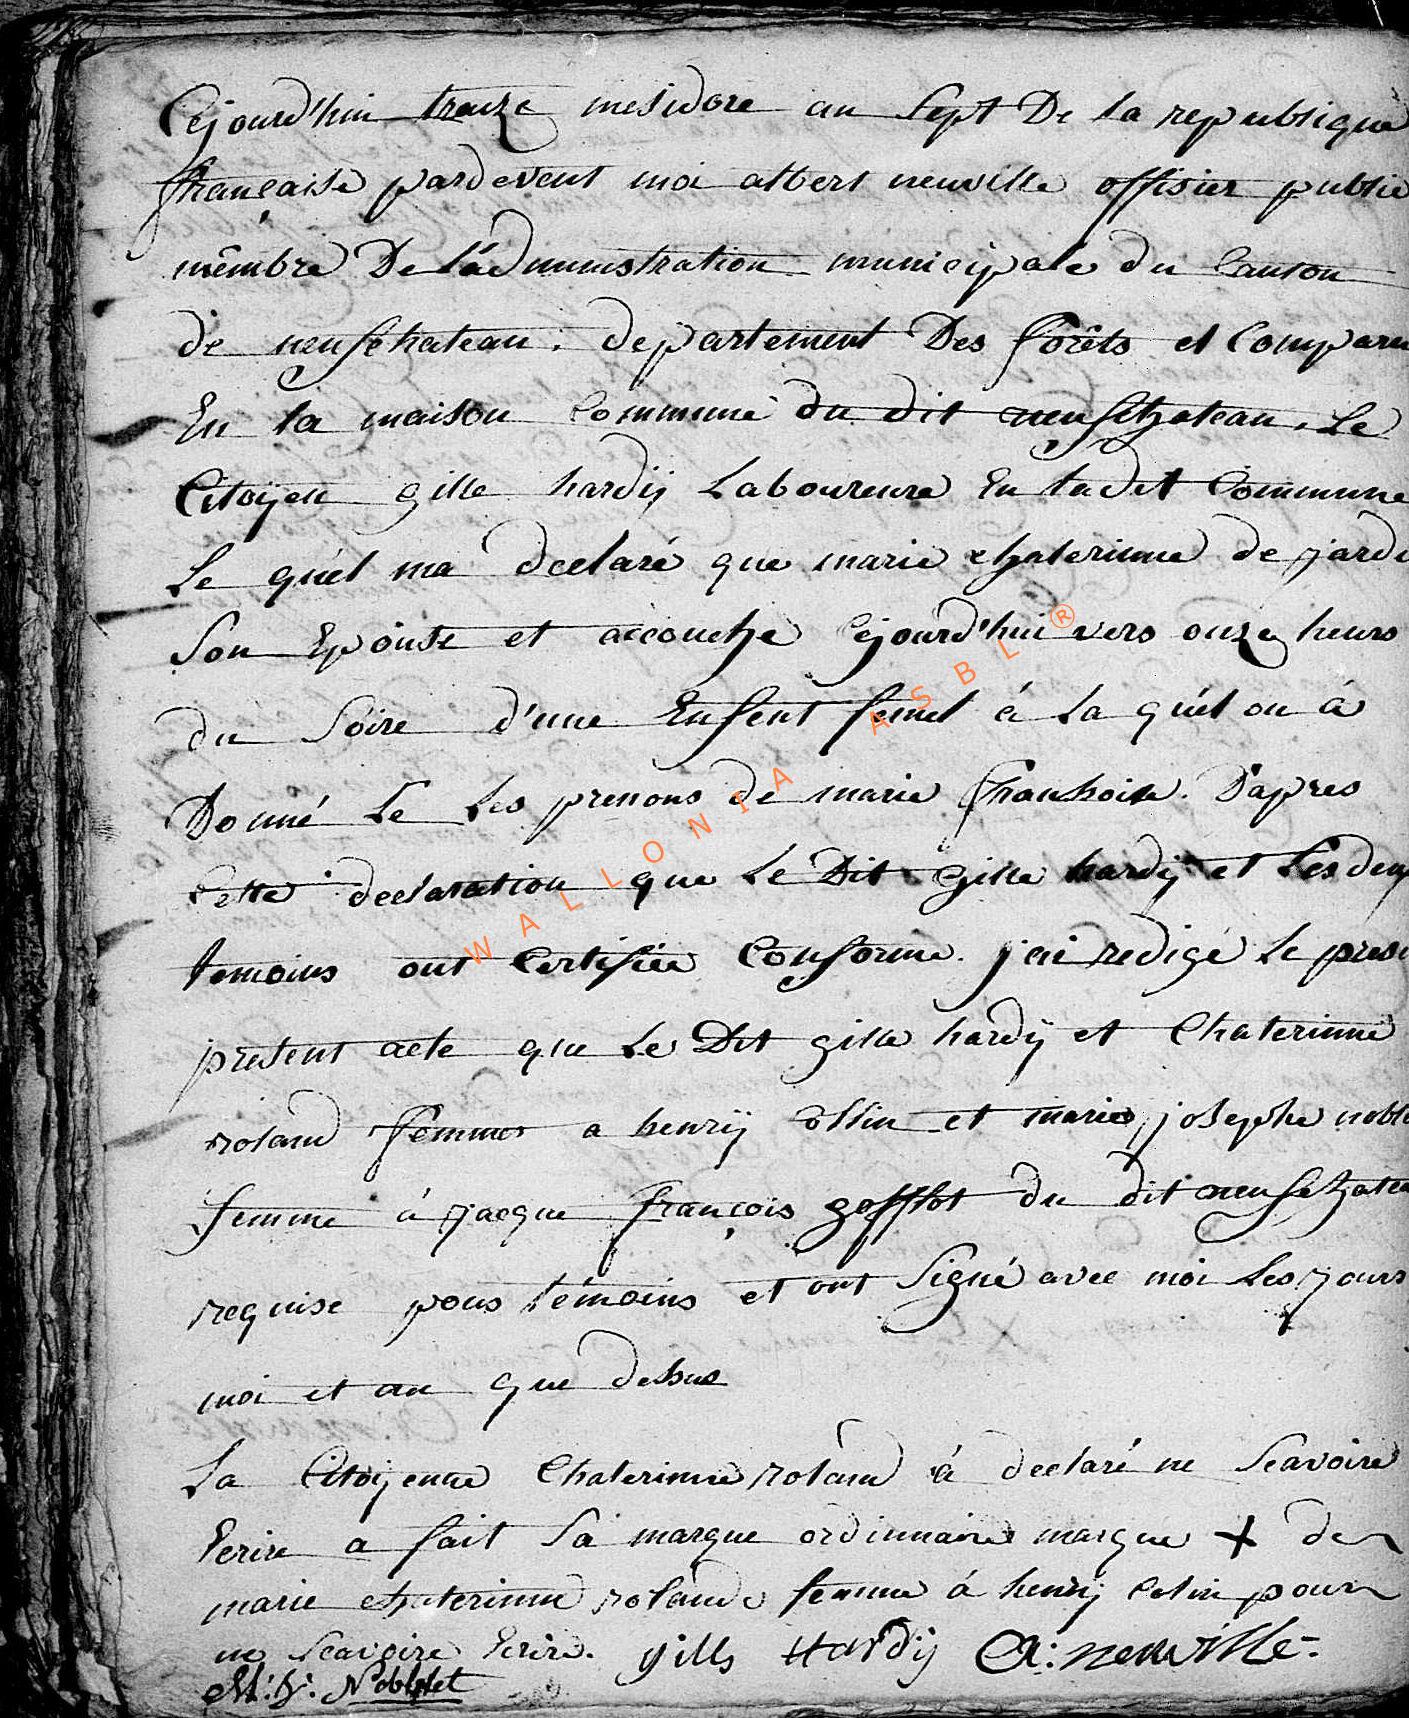 Cejourd'hui traize mesidore an sept De la republique
française pardevent moi albert neuville offisier public
mêmbre De l'ádmunistration municipale du Canton
de neufchateau. departement Des forêts et Comparu
En la maison Commune du dit neufchateau, Le
Citoÿen gille hardÿ Laboureure En ladit Commune
Le quél ma declaré que marie chaterinne de jardi
Son Epouse et accouche Cejourd'hui vers onze heurs
du Soire d'une Enfent femel á La quél on á
Donné Le Les prenons de marie franhoise. D'apres
Cette declaration que Le Dit Gille hardÿ et Les deux
temoins ont Certifiée Conforme. j'ai redigé Le prese
present acte que Le Dit gille hardÿ et Chaterinne
roland femmes a henrÿ Collin et marie josephe noble
femme á jacque françois gofflot du dit neufchatea
requise pous témoins et ont Signé avec moi Les jours
moi et an que dessus
La Citoÿenne Chaterinne roland á declaré ne Scavoire
Ecrire a fait Sa marque ordinnaire marque + de
marie chaterinne rolande femme á henrÿ Colin pour
ne Scavoire Ecrire. gills Hardÿ A: neuville
M: j: Noblet
WALLONIA ASBL ®